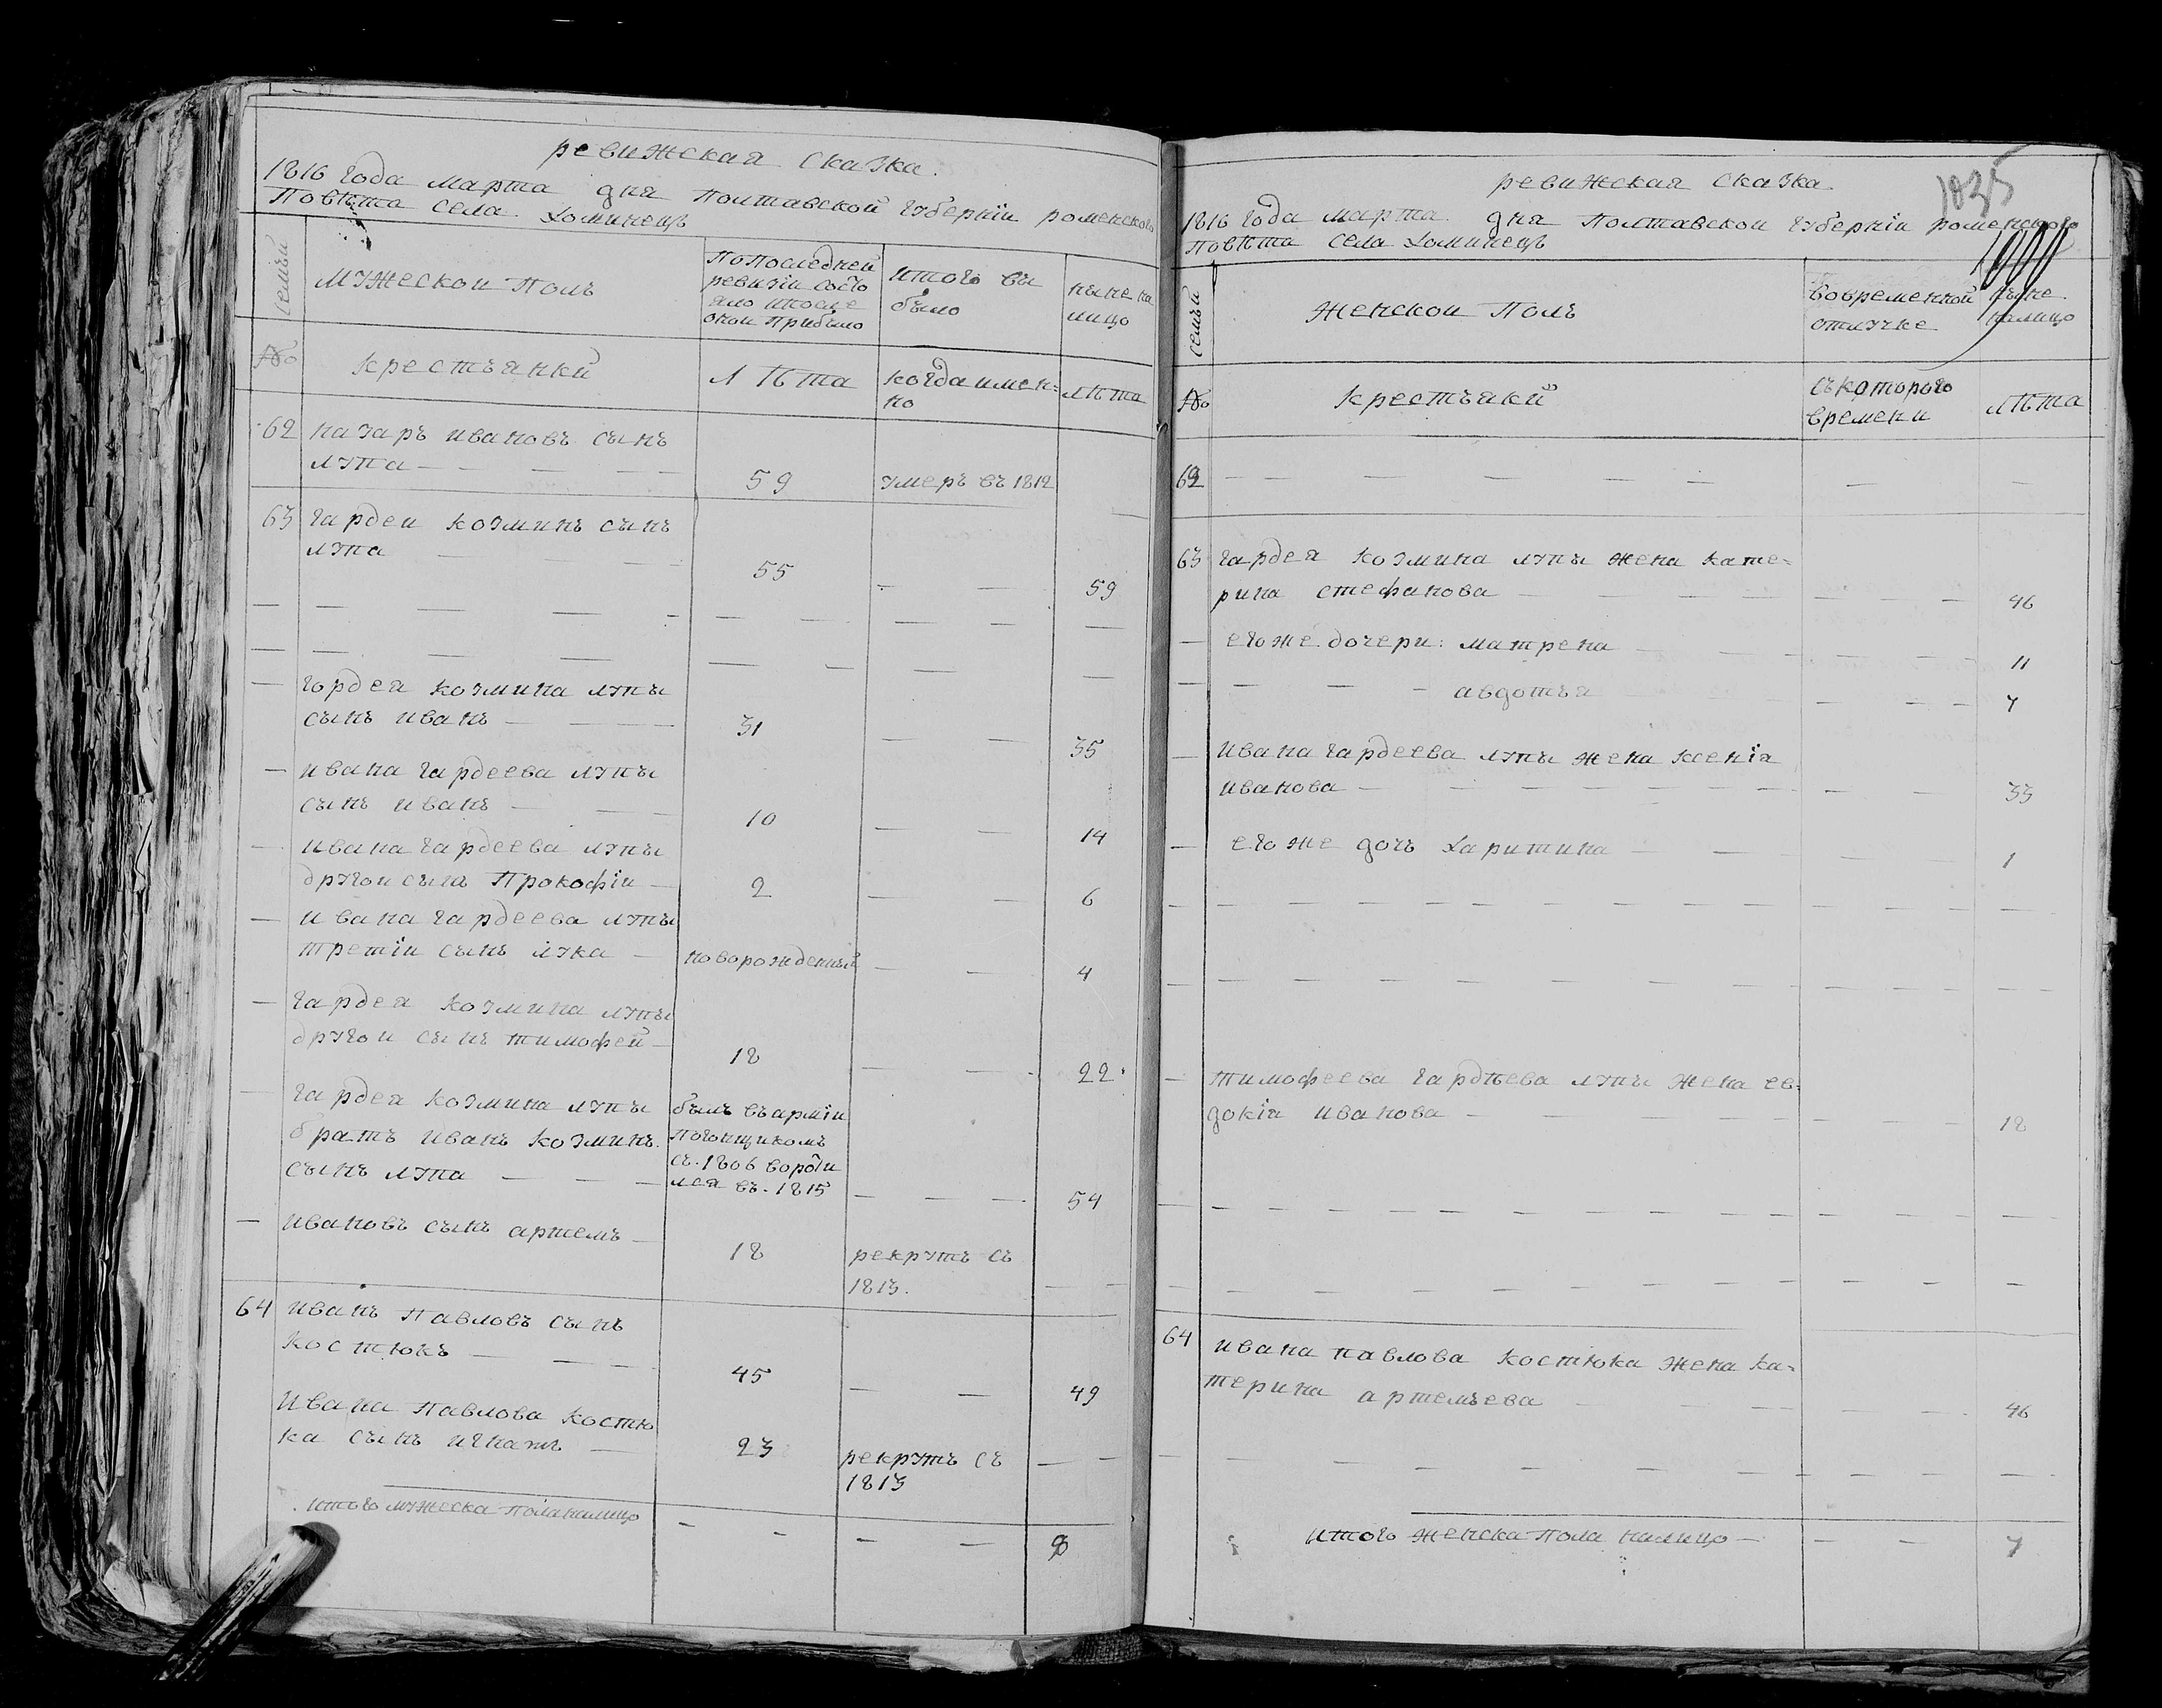 ревижская сказка.
1816 года марта дня Полтавской губернiи роменского
Повѣта села хоминецъ
семьи
мужескои Полъ
Попоследней
ревизiи состо
яло ипосле
онои Прибыло
итого вы
было
ныне на
лицо
№
крестъянки
лѣта
когда имен=
но
лѣта
62 назаръ ивановъ сынъ
лупа — — — — —
59 умеръ въ 1812
63 гардеи козминъ сынъ
лупа — — —
55 — — 59
гордея козмина лупы
сынъ иванъ — — —
31 — — 35
ивана гардеева лупы
сынъ иванъ — — —
10 — — 14
ивана гардеева лупы
другои сынъ Прокофiи —
2 — — 6
ивана гардеева лупы
третiи сынъ лука —
новорожденный — — 4
гардея козмина лупы
другои сынъ тимофей —
18 — — 22
гардея козмина лупы
братъ иванъ козминъ
сынъ лупа — — —
былъ въ армiи
погонщикомъ
съ. 1806 вороти
лся въ. 1815 — — — 54
ивановъ сынъ артемъ —
18 рекрутъ съ
1813. — —
64 иванъ Павловъ сынъ
костюкъ — — —
45 — — 49
ивана Павлова костю
ка сынъ игнатъ —
23 рекрутъ съ — —
1813
итого мужеска Пола налицо
— — — — 8
1035
ревижская сказка.
1816 года марта дня Полтавскои губернiи роменского
повѣта села хоминецъ
семьи
женскои Полъ
вовременной
отлучке
ныне
налицо
№
крестъяки
съкоторого
времени
лѣта
62 — — — — — — — —
63 гардея козмина лупы жена кате=
рина стефанова — — — — — — — 46
— егоже дочери: матрена — — 11
— — — — авдотъя — — — 7
— Ивана гардеева лупы жена ксенiя
иванова — — — — — — — — 33
— его же дочъ харитина — — 1
— тимофеева гардѣева лупы жена ев=
докiя иванова — — — — — — 18
64 ивана павлова костюка жена ка=
терина артемъева — — — — — 46
итого женска пола налицо — — — 7